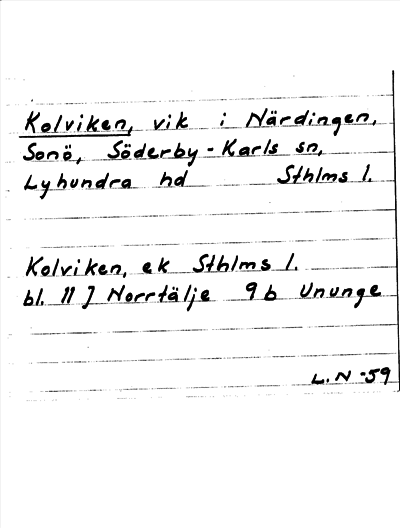 Kolviken, vik i Närdingen,
Sonö, Söderby-Karls sn,
Lyhundra hd Sthlms l.
Kolviken, ek Sthlms l.
bl. 11 J Norrtälje 9 b Ununge
L.N -59